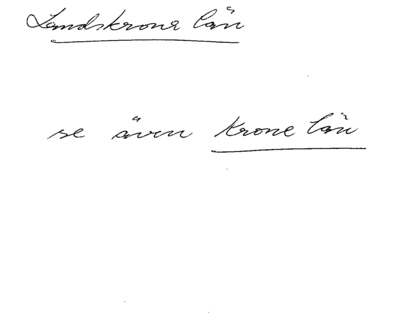 Landskrona län
se även Krone län